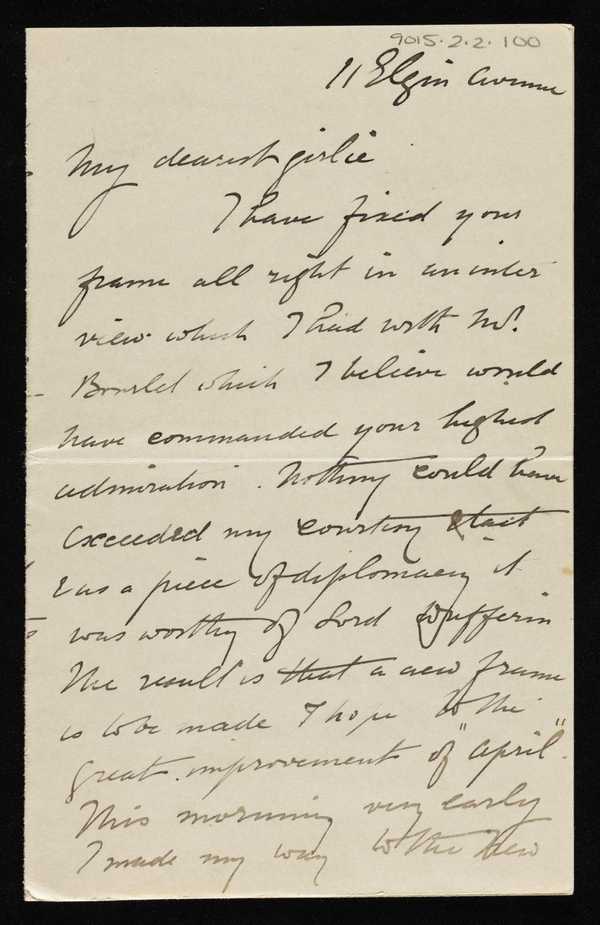 9015.2.2.100
11 Elgin Avenue
My dearest girlie
I have fixed your
frame all right in an inter
view which I had with Mr.
which I believe would
have commanded your highest
admiration. Nothing could have
exceeded my courtesy & tact
& as a piece of diplomacy it
was worthy of Lord Dufferin
The result is that a new frame
is to be made I hope to the
great improvement of "April".
This morning very early
I made my way to the New